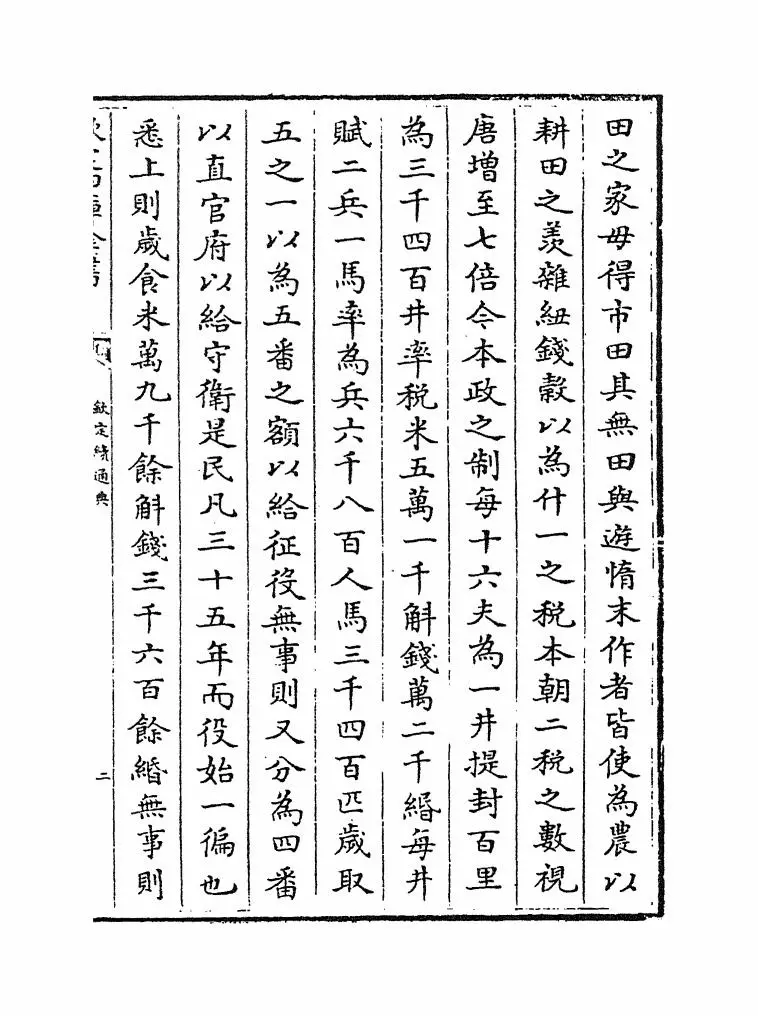 田之家毋得市田其無田與遊惰末作者皆使為農以
耕田之羡雜紐錢穀以為什一之税本朝二税之數視
唐增至七倍今本政之制每十六夫為一井提封百里
為三千四百井率税米五萬一千斛錢萬二千緡每井
賦二兵一馬率為兵六千八百人馬三千四百匹歲取
五之一以為五番之額以給征役無事則又分為四番
以直官府以給守衛是民凡三十五年而役始一徧也
悉上則歲食米萬九千餘斛錢三千六百餘緡無事則
欽定續通典
二